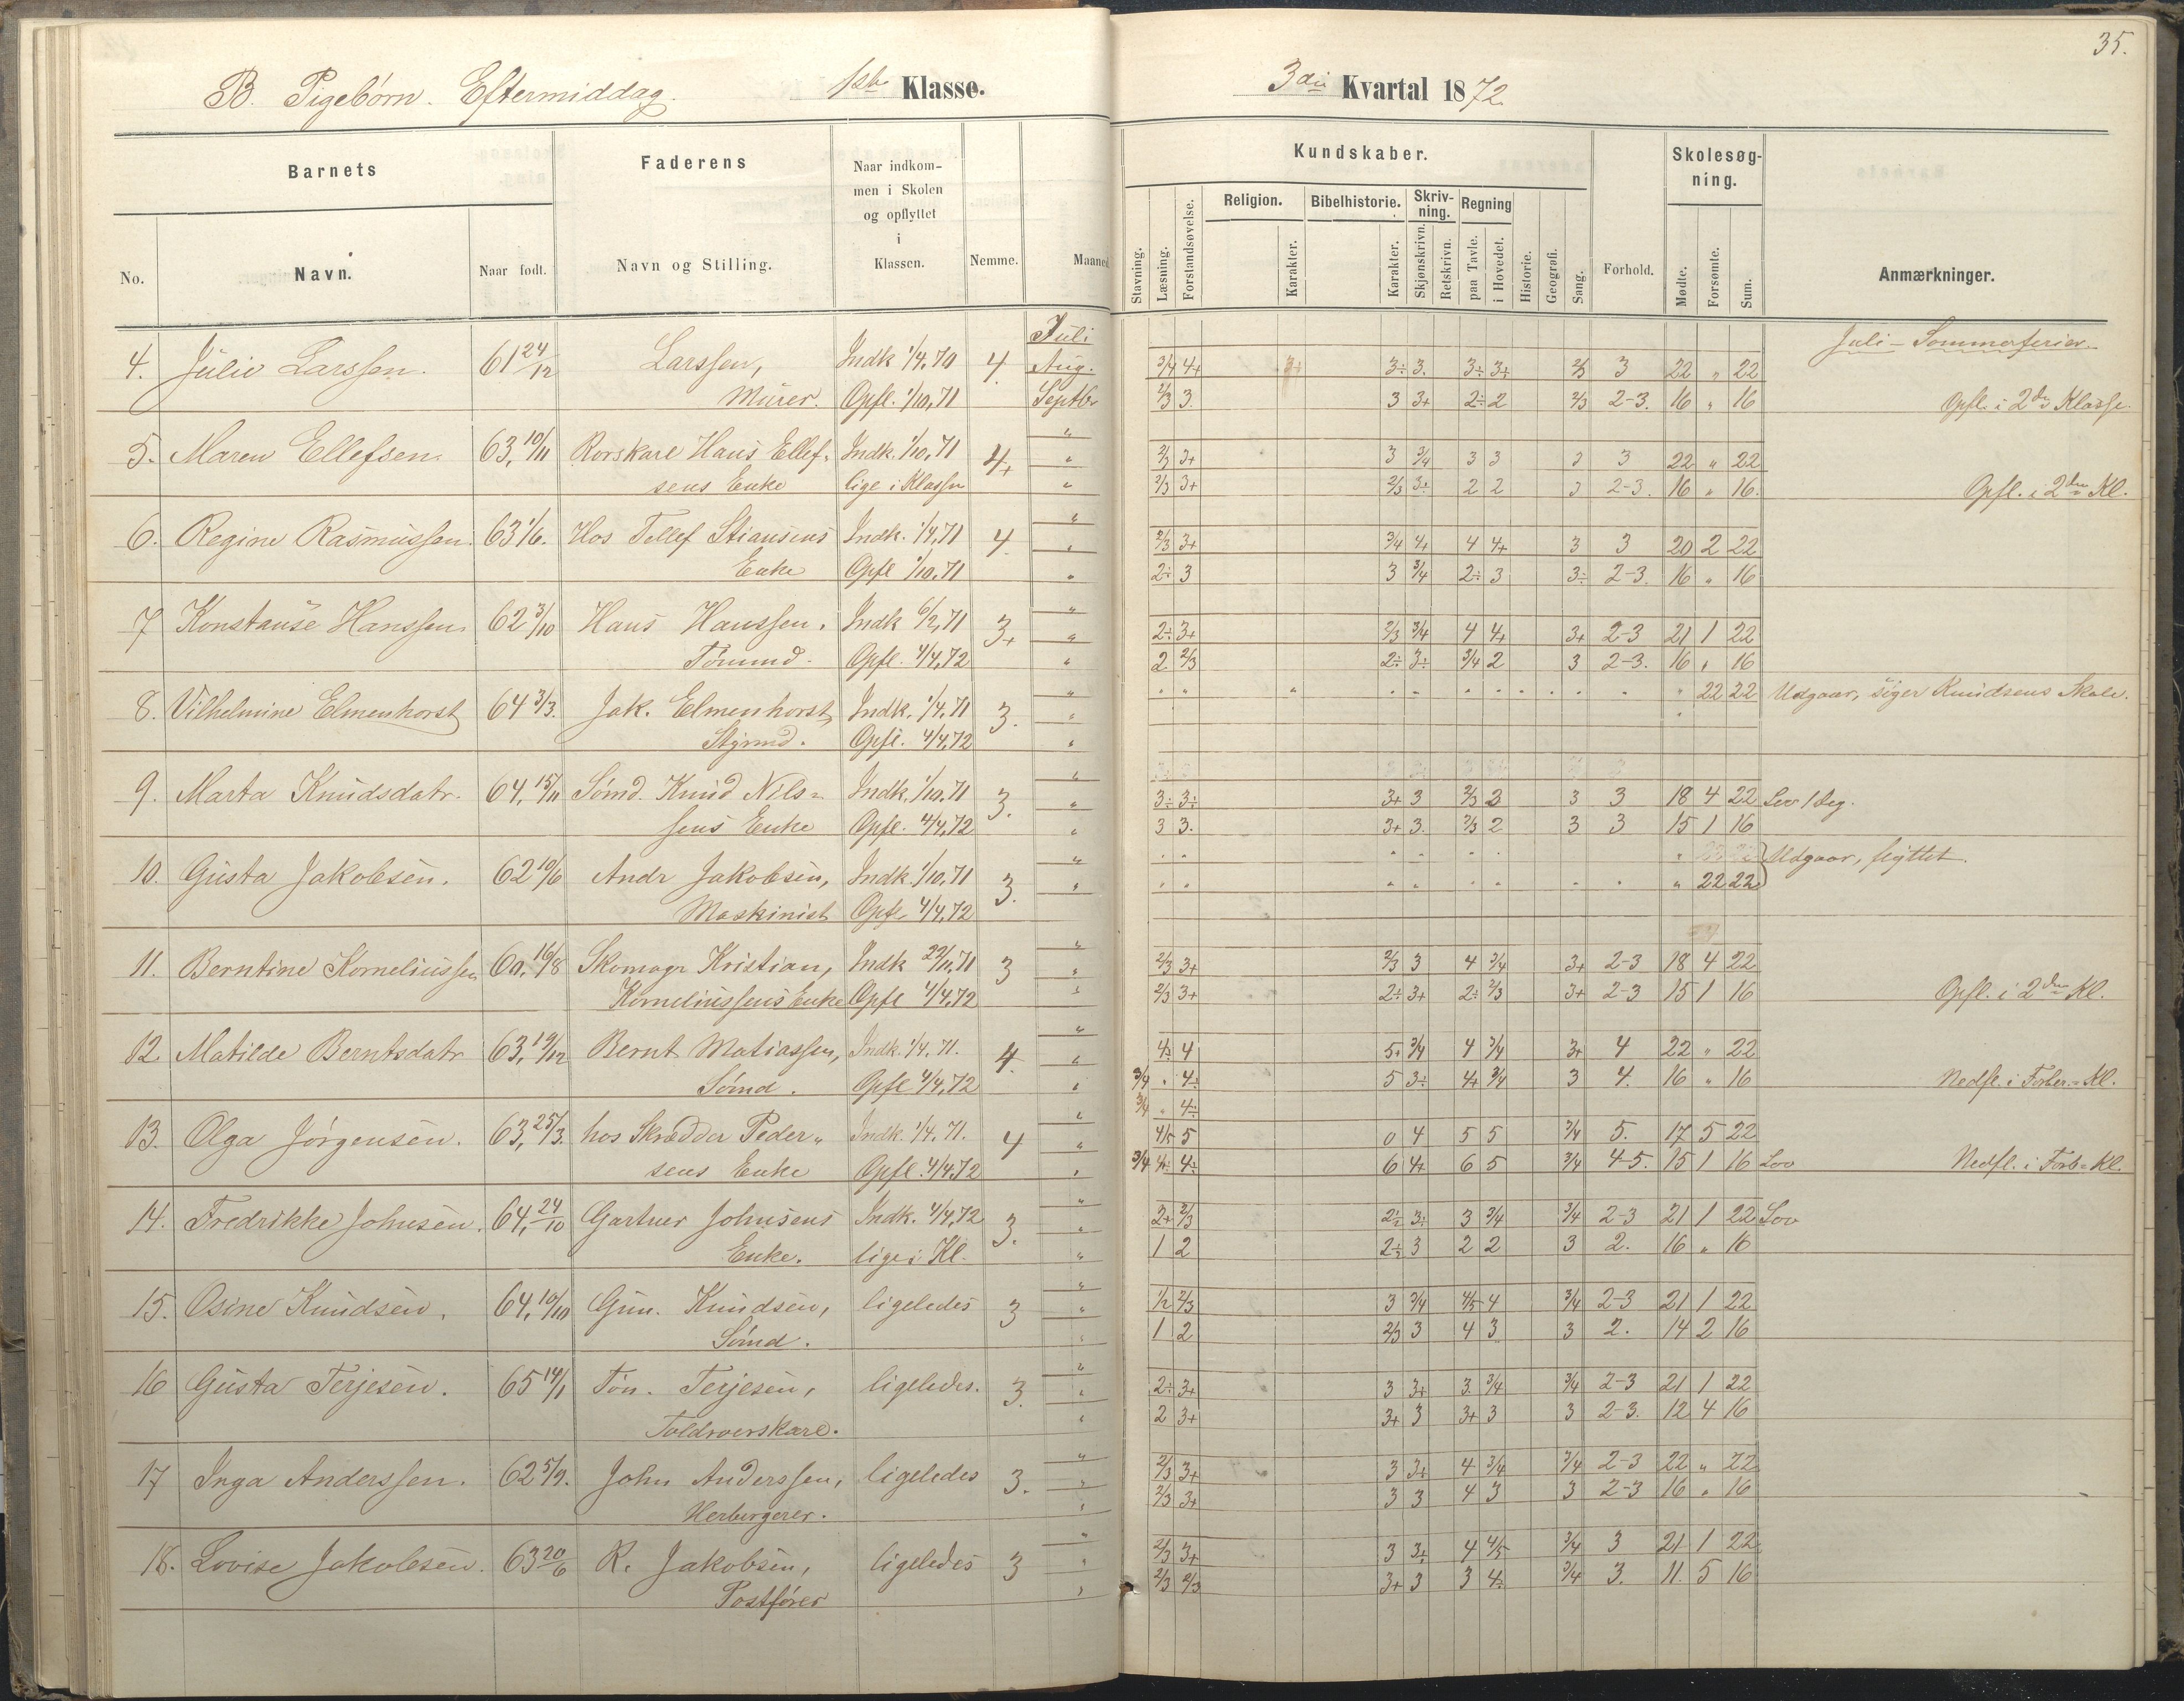 35.
B. Pigebørn. Eftermiddag. 1ste Klasse. 3die Kvartal 1872
Barnets Faderens Naar indkommen i Skolen og opflyttet i Klassen. Nemme. Maaned
No. Navn. Naar født. Navn og Stilling.
Kundskaber. Skolesøgning.
Stavning. Læsning. Forstandsøvelse. Religion. Karakter. Bibelhistorie. Karakter. Skrivning. Skjønskrivn. Retskrivn. Regning paa Tavle. i Hovedet. Historie. Geografi. Sang. Forhold. Mødte. Forsømte. Sum. Anmærkninger.
Juli Juli - Sommerferier
4. Julie Larssen. 61 24/12 Larssen, Indk 1/4, 70 4. Aug. 3/4 4+ 3÷ 3. 3÷ 3÷ 2/3 3 22 „ 22
Murer. Opfl. 1/10, 71 Septbr 2/3 3. 3 3+ 2÷ 2 2/3 2-3. 16 „ 16 Opfl. i 2den Klasse.
5. Maren Ellefsen. 63, 10/11 Rorskarl Hans Ellef- Indk. 1/10, 71 4+ „ 2/3 3+ 3 3/4 3 3 3 3 22 „ 22
sens Enke lige i Klassen „ 2/3 3+ 2/3 3÷ 2 2 3 2-3. 16 „ 16. Opfl. i 2den Kl.
6. Regine Rasmussen. 63 1/6. Hos Tellef Stiansens Indk. 1/4, 71 4. „ 2/3 3+ 3/4 4+ 4 4+ 3 3 20 2 22
Enke Opfl 1/10, 71 „ 2÷ 3 3 3/4 2÷ 3 3÷ 2-3. 16 „ 16
7 Konstanse Hanssen. 62 3/10 Hans Hanssen. Indk 6/2, 71 3+ „ 2÷ 3+ 2/3 3/4 4 4+ 3+ 2-3 21 1 22
Tømmd. Opfl. 4/4, 72 „ 2 2/3 2÷ 3÷ 3/4 2 3 2-3. 16 „ 16
8. Vilhelmine Elmenhorst 64 3/3. Jak. Elmenhorst, Indk. 1/4, 71 3. „ 22 22 Udgaar, siger Knudsens Skole.
Styrmd. Opfl. 4/4, 72
9. Marta Knudsdatr. 64, 15/11 Sømd. Knud Nils- Indk. 1/10, 71 3. „ 3÷ 3÷ 3+ 3 2/3 3 3 3 18 4 22
sens Enke Opfl. 4/4, 72 „ 3 3. 3+ 3. 2/3 2 3 3 15 1 16
10. Gusta Jakobsen. 62 10/6 Andr Jakobsen, Indk. 1/10, 71 3. „ Udgaar, flyttet.
Maskinist Opfl. 4/4, 72 „ 22 22
11. Berntine Korneliussen 60, 16/8 Skomagr Kristian, Indk 22/11, 71 3 „ 2/3 3+ 2/3 3 4 3/4 3+ 2-3 18 4 22
Korneliussens Enke Opfl 4/4, 72 „ 2/3 3+ 2÷ 3+ 2÷ 2/3 3+ 2-3 15 1 16 Opfl. i 2den Kl.
12. Matilde Berntsdatr 63, 19/12 Bernt Matiassen, Indk. 1/4, 71. 4. „ 4÷ 4 5+ 3/4 4 3/4 3+ 4 22 „ 22
Sømd. Opfl 4/4, 72 „ 3/4 „ 4÷ 5 3÷ 4+ 3/4 3 4. 16 „ 16 Nedfl. i Forber.-Kl.
3/4 „ 4÷
13. Olga Jørgensen. 63, 25/3. hos Skrædder Peder- Indk. 1/4, 71. 4 „ 4/5 5 0 4 5 5 3/4 5. 17 5 22
sens Enke Opfl. 4/4, 72 „ 3/4 4÷ 4÷ 6 4+ 6 5 3/4 4-5. 15 1 16 Lov Nedfl. i Forb-Kl.
14. Fredrikke Johnsen. 64, 24/10 Gartner Johnsens Indk. 4/4, 72 3. „ 2+ 2/3 2÷ 3÷ 3 3/4 3/4 2-3 21 1 22 Lov
Enke. lige i Kl. „ 1 2 2÷ 3 2 2 3 2. 16 „ 16
15. Osine Knudsen. 64, 10/10 Gun. Knudsen, ligeledes 3 „ 1/2 2/3 3 3/4 4/5 4 3/4 2-3 21 1 22
Sømd. „ 1 2 2/3 3 4 3 3 2. 14 2 16
16 Gusta Terjesen. 65 14/1 Tøn. Terjesen, ligeledes. 3. „ 2÷ 3+ 3 3+ 3. 3/4 3/4 2-3 21 1 22
Toldroerskarl. „ 2 3+ 3+ 3 3+ 3 3 2-3. 12 4 16
17 Inga Anderssen. 62 5/9. John Anderssen, ligeledes 3. „ 2/3 3+ 3 3+ 4 3/4 3/4 2-3 22 „ 22
Herbergerer. „ 2/3 3+ 3 3 4 3 3 2-3 16 „ 16
18. Lovise Jakobsen. 63 20/6 R. Jakobsen, ligeledes 3 „ 2/3 3+ 3 3÷ 4 4/5 3/4 3 21 1 22
Postfører „ 2/3 2/3 3+ 3 3 4÷ 3/4 3. 11. 5 16